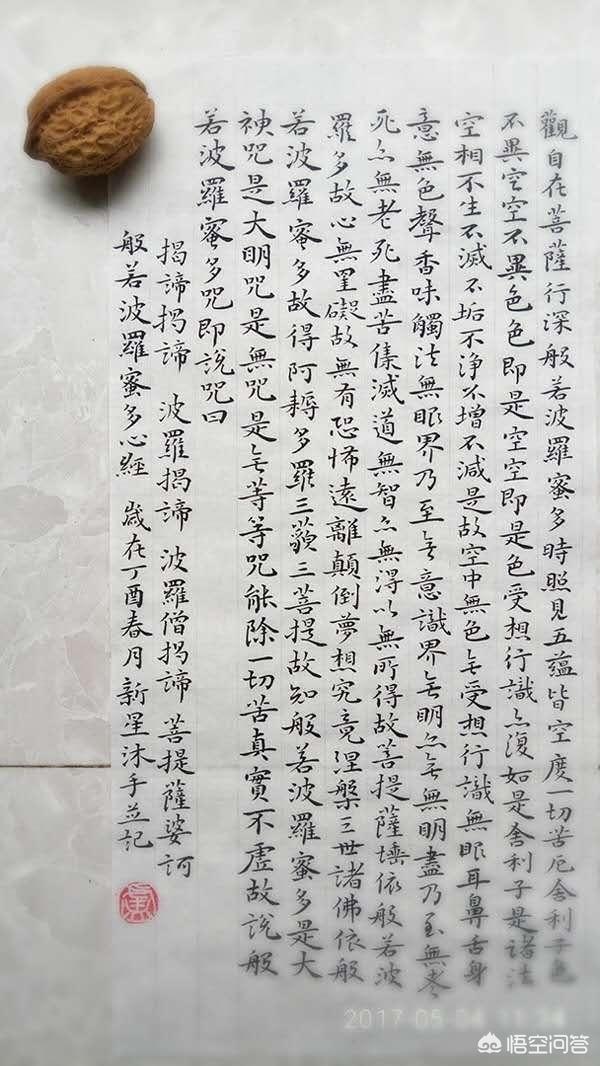 觀自在菩薩行深般若波羅蜜多時照見五蘊皆空度一切苦厄舍利子色
不異空空不異色色即是空空即是色受想行識亦復如是舍利子是諸法
空相不生不滅不垢不淨不增不減是故空中無色无受想行識無眼耳鼻舌身
意無色聲香味觸法無眼界乃至无意識界无明亦无無明盡乃至無老
死亦無老死盡苦集滅道無智亦無得以無所得故菩提薩埵依般若波
羅多故心無罣礙故無有恐怖遠離顛倒夢想究竟涅槃三世諸佛依般
若波羅蜜多故得阿耨多羅三藐三菩提故知般若波羅蜜多是大
神咒是大明咒是無咒是无等等咒能除一切苦真實不虛故說般
若波羅蜜多咒即說咒曰
揭諦揭諦 波羅揭諦 波羅僧揭諦 菩提薩婆訶
般若波羅蜜多心經 歲在丁酉春月新星沐手並記
2017-05-04 11:34
悟空问答